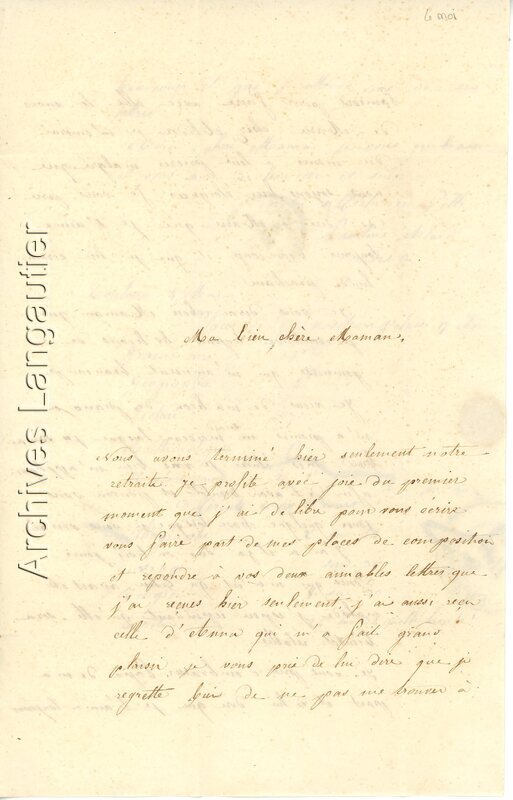 6 moi
Archives Langautier
Ma bien chère Maman,
Nous avons terminé hier seulement notre
retraite je profite avec joie du premier
moment que j'ai de libre pour vous écrire
vous faire part de mes places de composition
et répondre à vos deux aimables lettres que
j'ai reçues hier seulement, j'ai aussi reçu
celle d'Anna qui m'a fait grand
plaisir je vous prie de lui dire que je
regrette bien de ne pas me trouver à